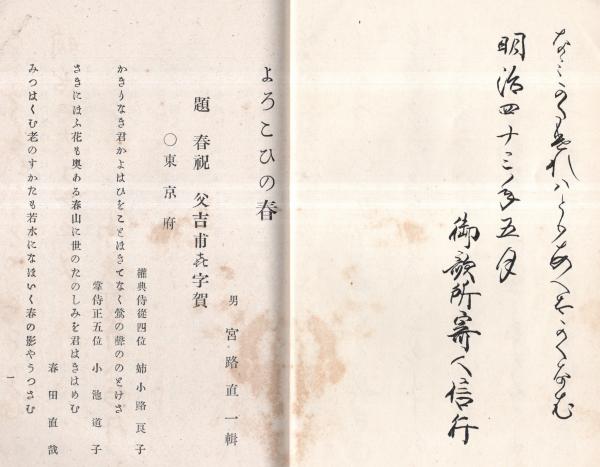 明治四十三年五月
御歌所寄人信行
よろこひの春
男 宮路直一輯
題 春祝 父吉甫㐂字賀
○東京府
權典侍從四位 姉小路良子
かきりなき君かよはひをことほきてなく鶯の聲ののとけさ
掌侍正五位 小池道子
さきにほふ花も奥ある春山に世のたのしみを君はきはめむ
春田直哉
みつはくむ老のすかたも若水になほいく春の影やうつさむ
一